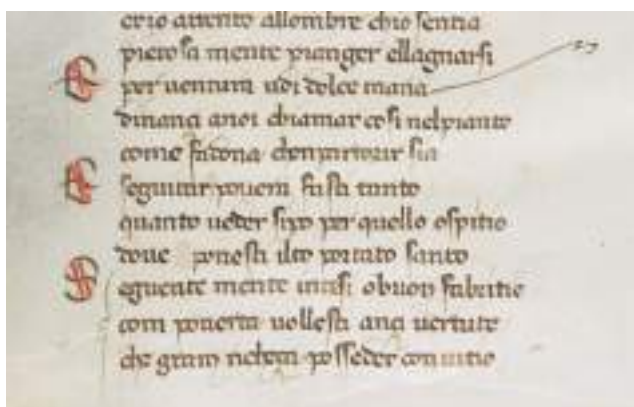 et io attento allombre chio sentia
pietosa mente pianger ellagnarsi
E per uentura udi dolce maria
dinanci anoi chiamar cosi nelpianto
come fadona chenparturir sia
E seguitar pouera fusti tanto
quanto ueder sipo per quello ospitio
doue ponesti ilto portato santo
S eguente mente intesi obuon fabritio
com pouerta uollesti anci uertute
che gram richeça posseder conuitio